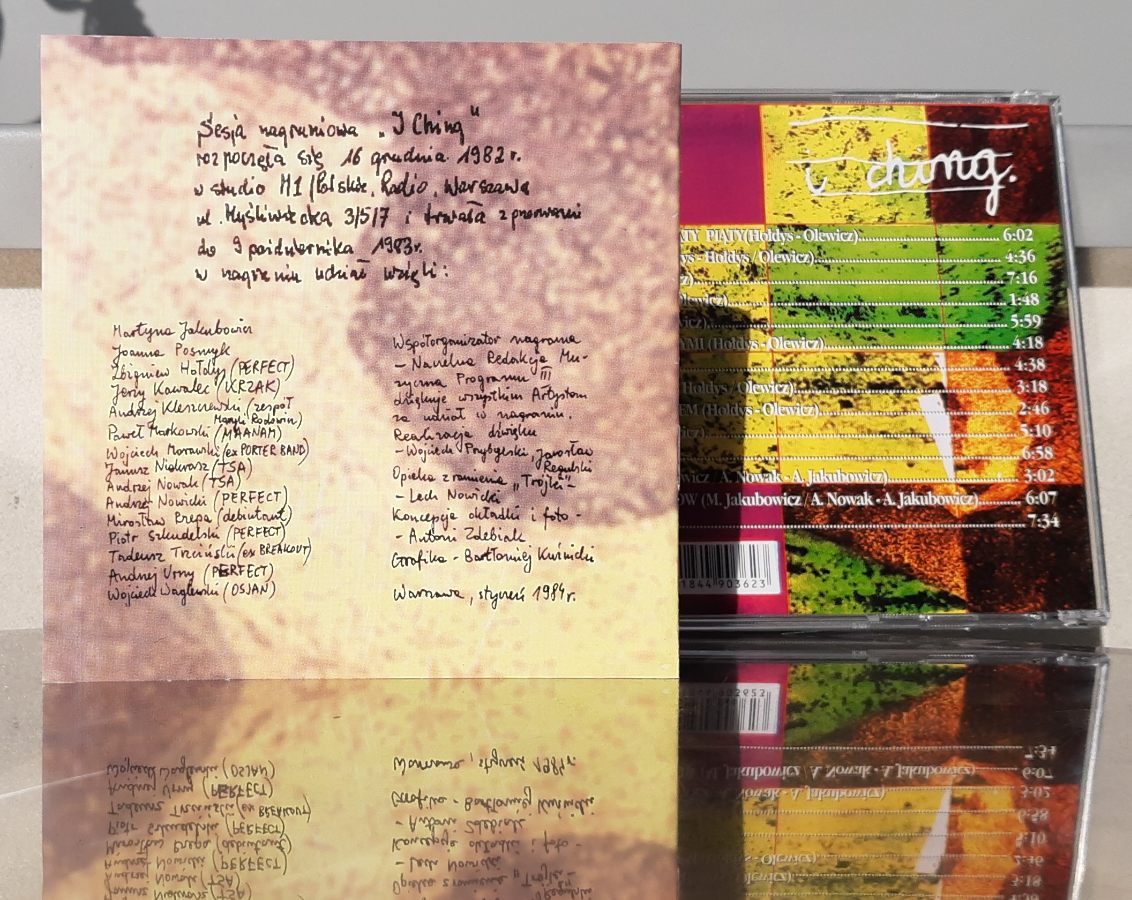 Sesja nagraniowa „I Ching"
rozpoczęła się 16 grudnia 1982 r.
w studio M1 /Polskie Radio, Warszawa
ul. Myśliwiecka 3/5/7 i trwała z przerwami
do 9 października 1983r.
w nagraniu udział wzięli:
Martyna Jakubowicz
Joanna Posmyk
Zbigniew Hołdys (PERFECT)
Jerzy Kawalec (KRZAK)
Andrzej Kleszczewski (zespół
Maryli Rodowicz)
Paweł Markowski (MAANAM)
Wojciech Morawski (ex PORTER BAND)
Janusz Niekrasz (TSA)
Andrzej Nowak (TSA)
Andrzej Nowicki (PERFECT)
Mirosław Brepa (debiutant)
Piotr Szkudelski (PERFECT)
Tadeusz Trzciński (ex BREAKOUT)
Andrzej Urny (PERFECT)
Wojciech Waglewski (OSJAN)
Współorganizator nagrania
- Naczelna Redakcja Mu-
zyczna Programu III
dziękuje wszystkim Artystom
za udział w nagraniu.
Realizacja dźwięku
- Wojciech Przybylski, Jarosław
Regulski
Opieka z ramienia „Trójki"
- Lech Nowicki
Koncepcja okładki i foto -
- Antoni Zdebiak
Grafika - Bartłomiej Kuźnicki
Warszawa, styczeń 1984r.
i ching.
ATY PIĄTY(Hołdys - Olewicz) 6:02
ys - Hołdys / Olewicz) 4:36
7:16
1:48
5:59
YMI (Hołdys - Olewicz) 4:18
4:38
Hołdys / Olewicz) 3:18
EM (Hołdys - Olewicz) 2:46
5:10
6:58
/ A. Nowak - A. Jakubowicz) 3:02
ÓW (M. Jakubowicz / A. Nowak - A. Jakubowicz) 6:07
7:34
1844 903623